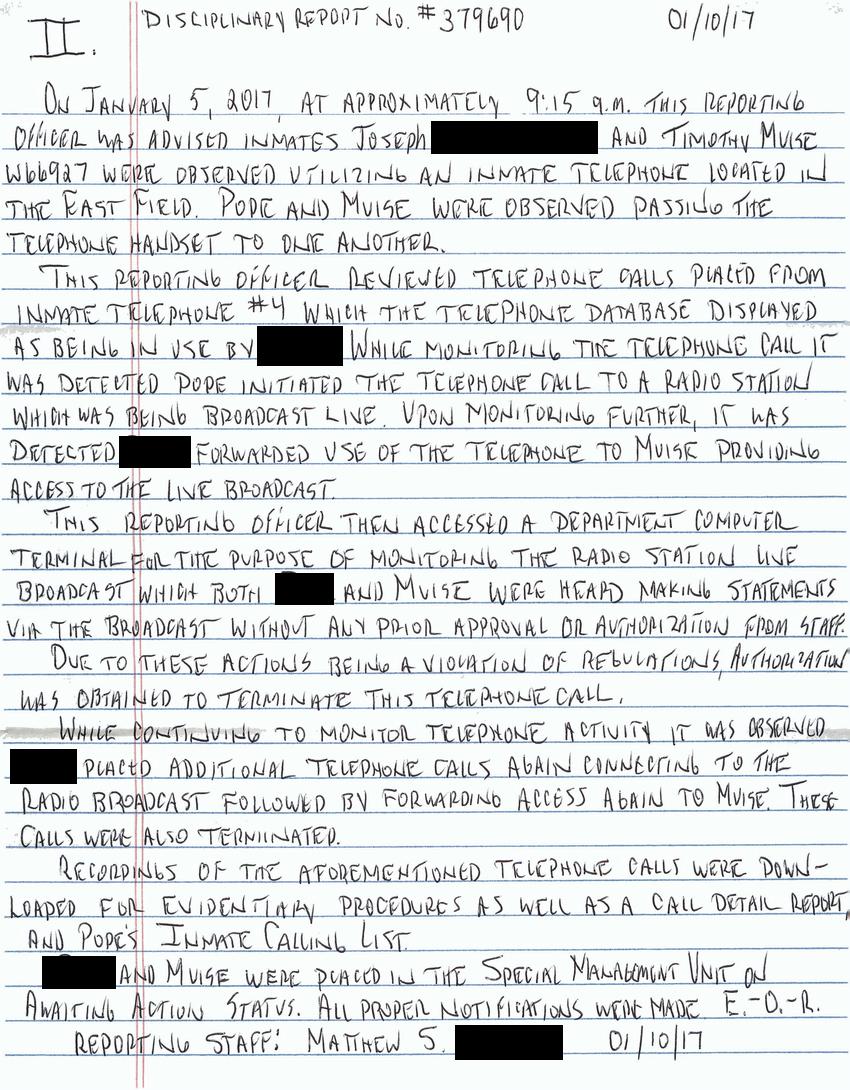 II. DISCIPLINARY REPORT NO. #379690 01/10/17
ON JANUARY 5, 2017, AT APPROXIMATELY 9:15 a.m. THIS REPORTING
OFFICER WAS ADVISED INMATES JOSEPH AND TIMOTHY MUISE
W66927 WERE OBSERVED UTILIZING AN INMATE TELEPHONE LOCATED IN
THE EAST FIELD. POPE AND MUISE WERE OBSERVED PASSING THE
TELEPHONE HANDSET TO ONE ANOTHER.
THIS REPORTING OFFICER REVIEWED TELEPHONE CALLS PLACED FROM
INMATE TELEPHONE #4 WHICH THE TELEPHONE DATABASE DISPLAYED
AS BEING IN USE BY WHILE MONITORING THE TELEPHONE CALL IT
WAS DETECTED POPE INITIATED THE TELEPHONE CALL TO A RADIO STATION
WHICH WAS BEING BROADCAST LIVE. UPON MONITORING FURTHER, IT WAS
DETECTED FORWARDED USE OF THE TELEPHONE TO MUISE PROVIDING
ACCESS TO THE LIVE BROADCAST.
THIS REPORTING OFFICER THEN ACCESSED A DEPARTMENT COMPUTER
TERMINAL FOR THE PURPOSE OF MONITORING THE RADIO STATION LIVE
BROADCAST WHICH BOTH AND MUISE WERE HEARD MAKING STATEMENTS
VIA THE BROADCAST WITHOUT ANY PRIOR APPROVAL OR AUTHORIZATION FROM STAFF.
DUE TO THESE ACTIONS BEING A VIOLATION OF REGULATIONS, AUTHORIZATION
WAS OBTAINED TO TERMINATE THIS TELEPHONE CALL.
WHILE CONTINUING TO MONITOR TELEPHONE ACTIVITY IT WAS OBSERVED
PLACED ADDITIONAL TELEPHONE CALLS AGAIN CONNECTING TO THE
RADIO BROADCAST FOLLOWED BY FORWARDING ACCESS AGAIN TO MUISE. THESE
CALLS WERE ALSO TERMINATED.
RECORDINGS OF THE AFOREMENTIONED TELEPHONE CALLS WERE DOWN-
LOADED FOR EVIDENTIARY PROCEDURES AS WELL AS A CALL DETAIL REPORT,
AND POPE'S INMATE CALLING LIST.
AND MUISE WERE PLACED IN THE SPECIAL MANAGEMENT UNIT ON
AWAITING ACTION STATUS. ALL PROPER NOTIFICATIONS WERE MADE. E.-O.-R.
REPORTING STAFF: MATTHEW S. 01/10/17